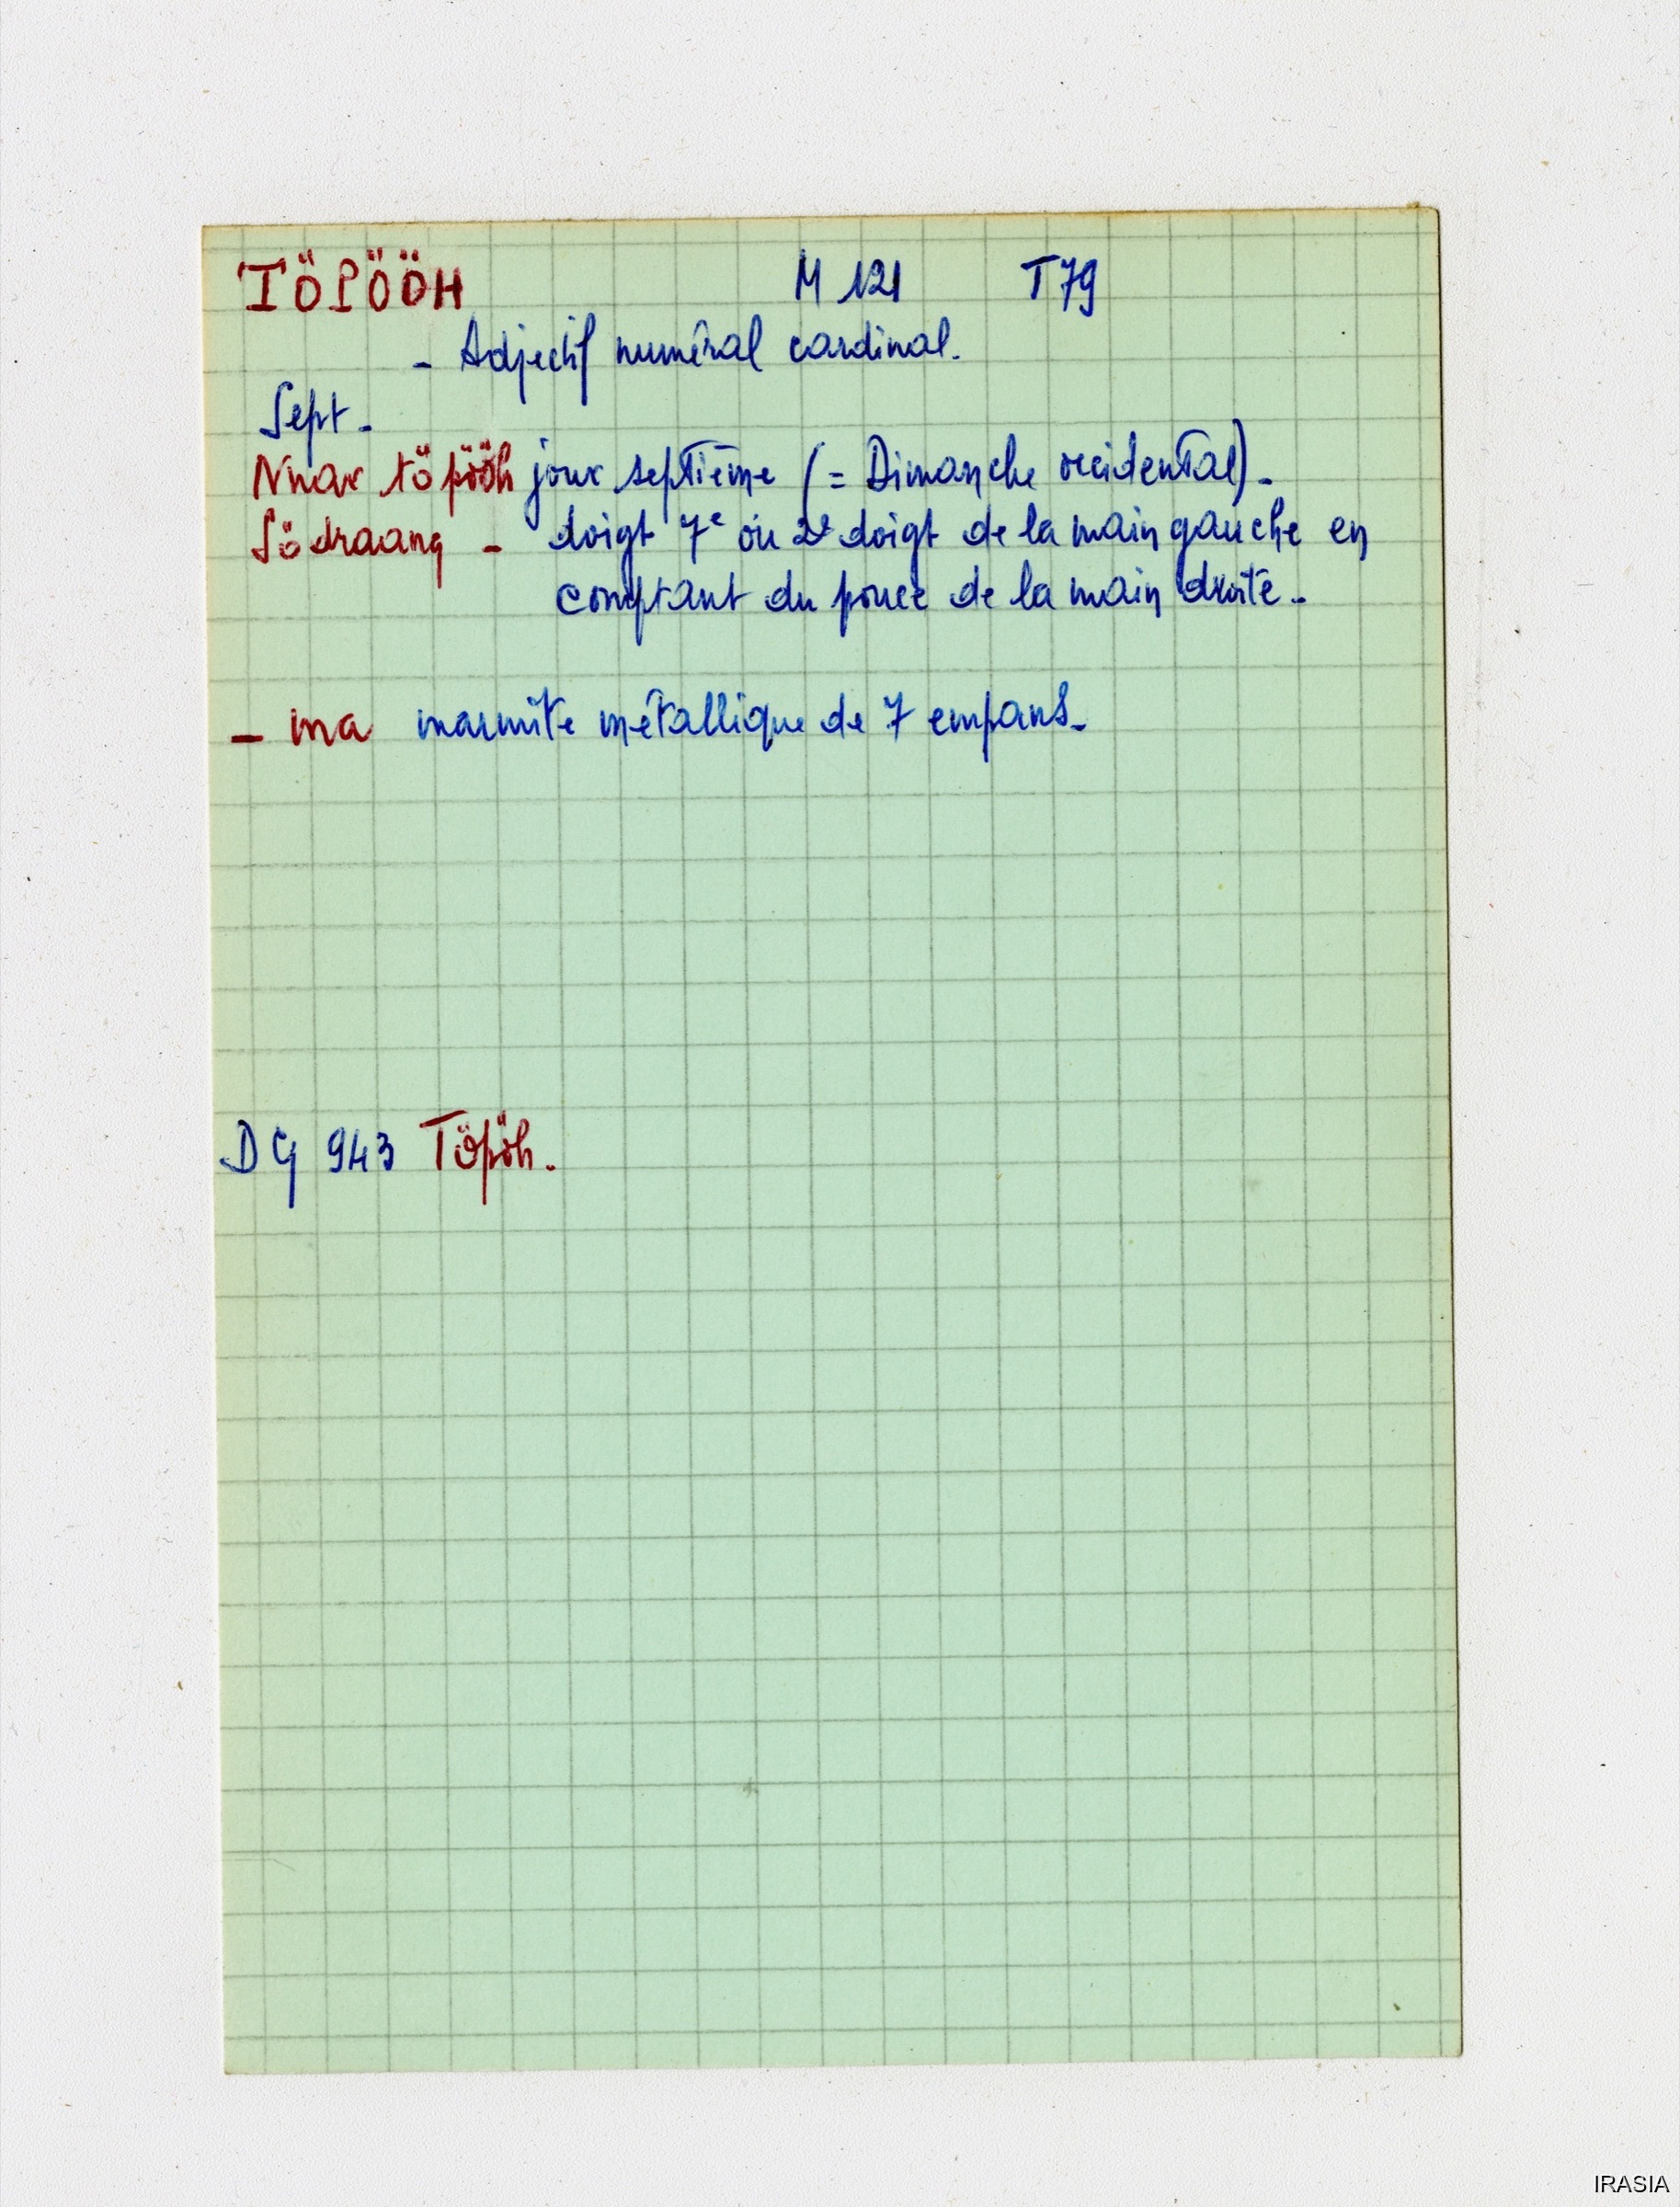 TÖPÖÖH M 121 T79
- Adjectif numéral cardinal.
Sept -
Nnar töpööh jour septième (= Dimanche occidental) -
Södraang - doigt 7e ou 2e doigt de la main gauche en
comptant du pouce de la main droite -
- ma marmite métallique de 7 empans -
DG 943 Töpöh.
IRASIA